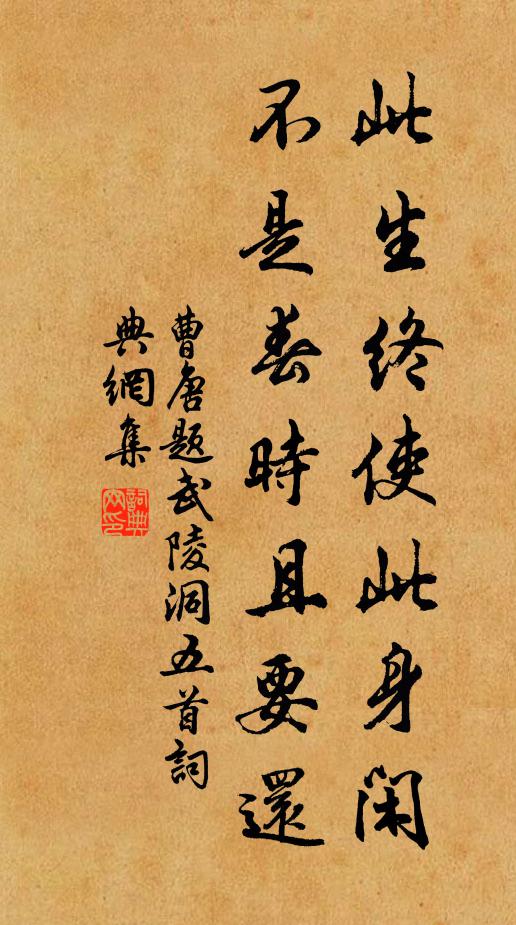 此生終使此身閑
不是春時且要還
曹唐題武陵洞五首詞
典網集
詞典
网印